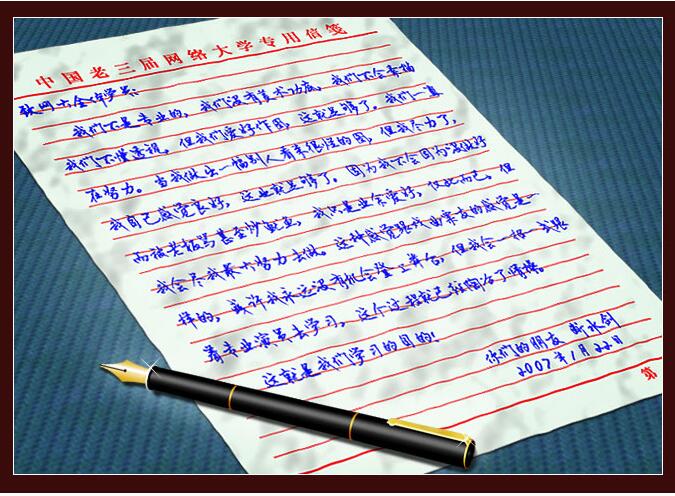 中国老三届网络大学专用信笺
致网大全体学员：
我们不是专业的，我们没有美术功底，我们不会素描
我们不懂透视。但我们爱好作图，这就足够了。我们一直
在努力。当我做出一幅别人看来很怪的图，但我尽力了，
我自己感觉良好，这也就足够了。因为我不会因为没做好
而被老板骂甚至炒鱿鱼，我只是业余爱好，仅此而已。但
我会尽我最大努力去做。这种感觉跟戏曲票友的感觉是一
样的，或许我永远没有机会登上舞台，但我会一招一式跟
着专业演员去学习，这个过程就已经陶冶了情操。
这就是我们学习的目的！
你们的朋友 断水剑
2007年1月22日
第